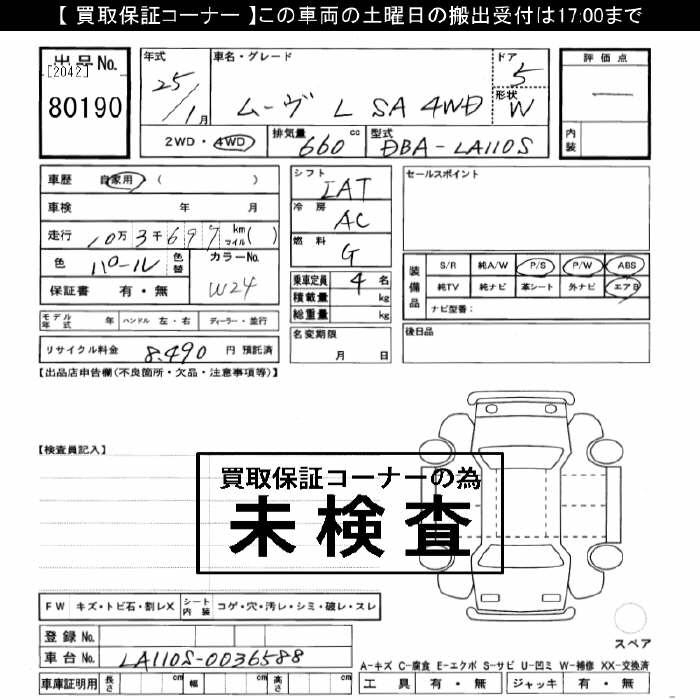 【 買取保証コーナー 】この車両の土曜日の搬出受付は17:00まで
出品No.
[2042]
80190
年式 25/1月
車名・グレード
ムーヴ L SA 4WD
ドア 5
形状 W
評価点
—
内装
2WD・4WD
排気量 660 cc
型式 DBA-LA110S
車歴 自家用 ( )
車検 年 月
走行 10万3千697 km マイル( )
色 パール 色替
カラーNo. W24
保証書 有・無
シフト IAT
冷房 AC
燃料 G
乗車定員 4 名
積載量 kg
総重量 kg
セールスポイント
装備品
S/R 純A/W P/S P/W ABS
純TV 純ナビ 革シート 外ナビ エアB
ナビ型番:
モデル年式 年 ハンドル 左・右 ディーラー・並行
リサイクル料金 8,490 円 預託済
名変期限
月 日
後日品
【出品店申告欄(不良箇所・欠品・注意事項等)】
【検査員記入】
買取保証コーナーの為
未検査
FW キズ・トビ石・割レX シート内装 コゲ・穴・汚レ・シミ・破レ・スレ
登録No.
車台No. LA110S-0036588
車庫証明用 長さ cm 幅 cm 高さ cm
スペア
A-キズ C-腐食 E-エクボ S-サビ U-凹ミ W-補修 XX-交換済
工具 有・無 ジャッキ 有・無